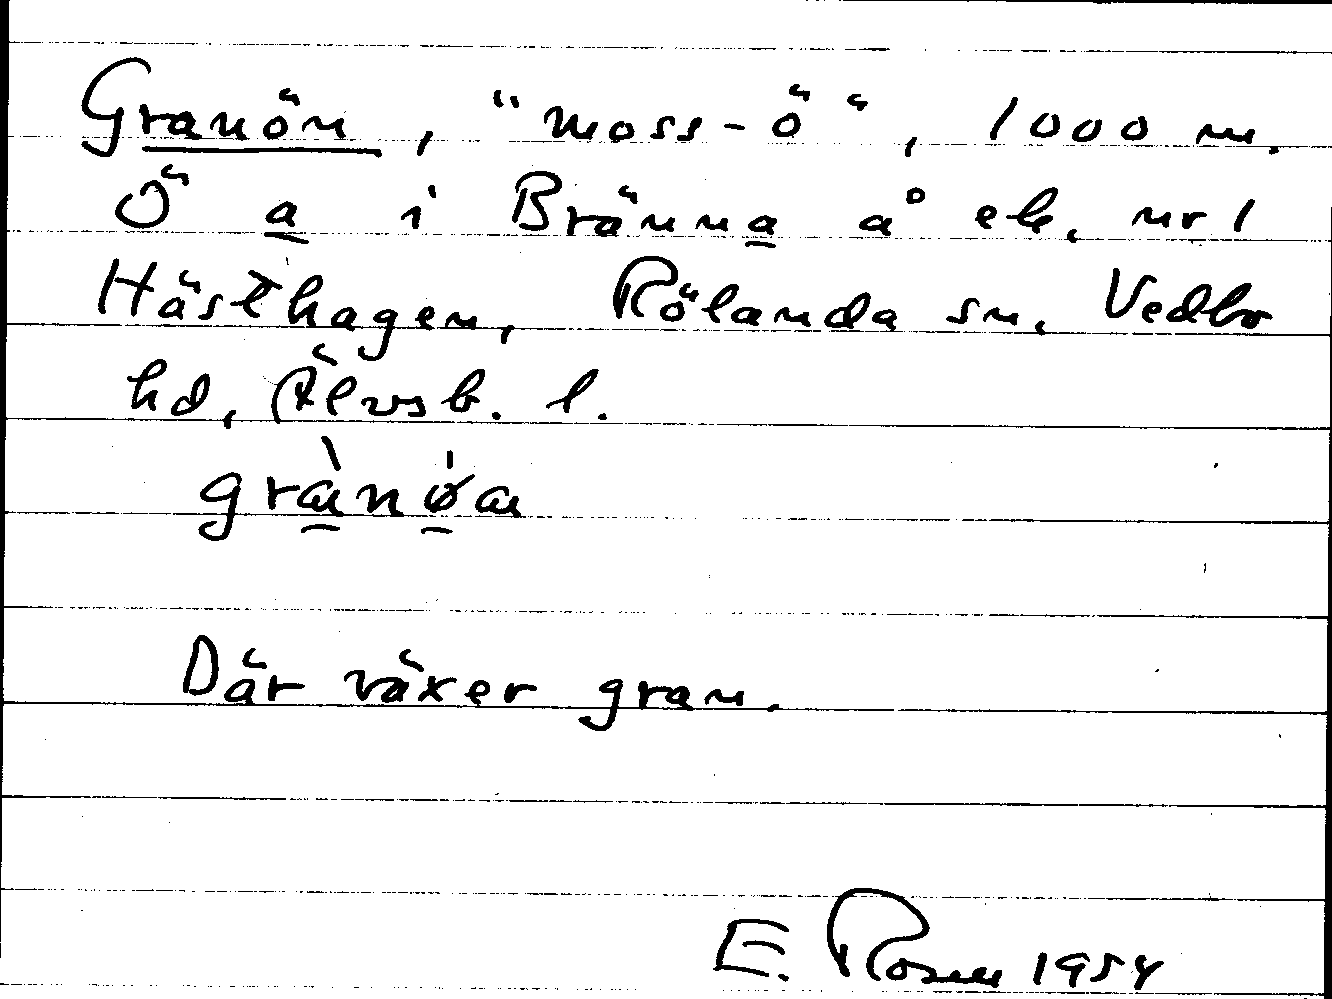 Granön, "moss-ö", 1000 m.
Ö a i Bränna å ek. nr 1
Hästhagen, Rölanda sn. Vedbo
hd, Älvsb. l.
Där växer gran.
E. Rosell 1954